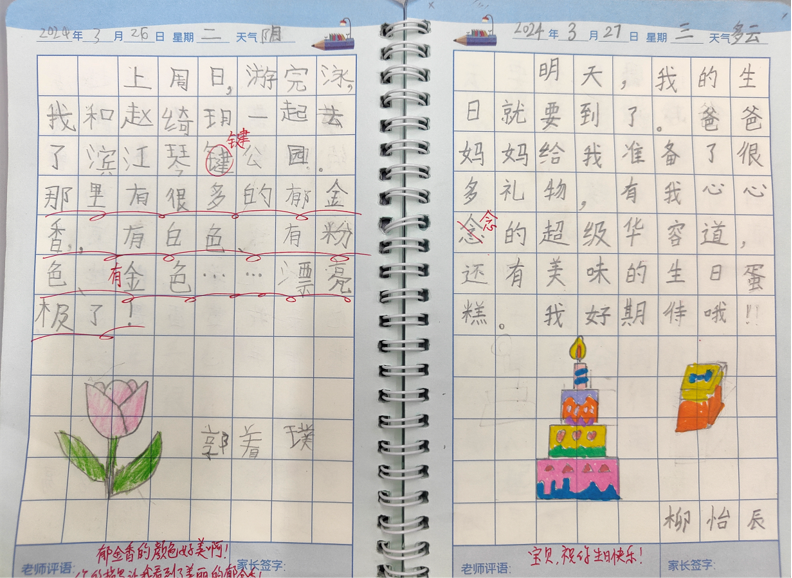 2024年3月26日 星期二 天气阴
上周日,游完泳,
我和赵绮玥一起去
键
了滨江琴键公园。
那里有很多的郁金
香,有白色、有粉
色、有金色……漂亮
极了!
郭着璞
郁金香的颜色好美啊!
老师评语:
家长签字:
2024年3月27日 星期三 天气多云
明天,我的生
日就要到了。爸爸
妈妈给我准备了很
多礼物,有我心心
念念的超级华容道,
还有美味的生日蛋
糕。我好期待哦!!
柳怡辰
宝贝,祝你生日快乐!
老师评语:
家长签字: